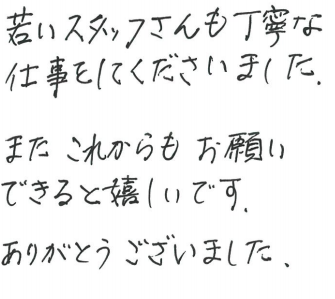 若いスタッフさんも丁寧な
仕事をしてくださいました.
また これからも お願い
できると嬉しいです.
ありがとう ございました.